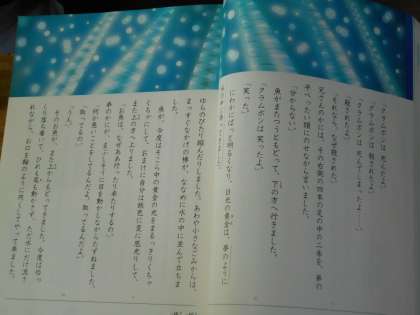 「クラムボンは 死んだよ。」
「クラムボンは 殺されたよ。」
「クラムボンは 死んでしまったよ……。」
「殺されたよ。」
「それなら、なぜ殺された。」
兄さんのかには、その右側の四本の足の中の二本を、弟の
平べったい頭にのせながら言いました。
「分からない。」
魚がまたつうともどって、下の方へ行きました。
「クラムボンは 笑ったよ。」
「笑った。」
にわかにぱっと明るくなり、日光の黄金は、夢のように
ゆらゆらのびたり縮んだりしました。あわや小さなごみからは、
まっすぐなかげの棒が、ななめに水の中に並んで立ちま
した。
魚が、今度はそこら中の黄金の光をまるっきりくちゃ
くちゃにして、おまけに自分は鉄色に変に底光りして、
また上の方へ上りました。
「お魚は、なぜああ行ったり来たりするの。」
弟のかにが、まぶしそうに目を動かしながらたずねました。
「何か悪いことをしてるんだよ。取ってるんだよ。」
「取ってるの。」
「うん。」
そのお魚が、また上からもどってきました。今度はゆっ
くり落ち着いて、ひれも尾も動かさず、ただ水にだけ流さ
れながら、お口を輪のように円くしてやって来ました。